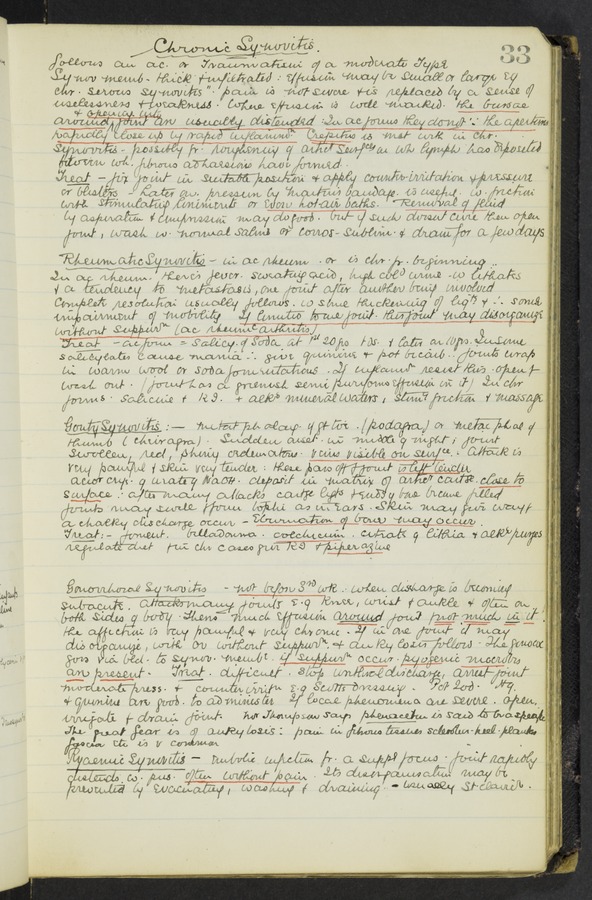 33
Chronic Synovitis.
follows an ac. or Traumatism of a moderate Type
Synov. memb. thick & infiltrated: effusion may be small or large eg
chr. serous synovites". pain is not severe & is replaced by a sense of
uselessness & weakness. Where effusion is well marked. the bursae
& opening into
around joint are usually distended In ac forms they do not ∵ the apertures
rapidly close up by rapid inflamn Crepitus is met with in chr.
Synovitis - possibly fr. roughening of artic surfces on wh lymph has deposited
or wh. fibrous adhaesions have formed.
Treat - fix joint in suitable position & apply counter-irritation & pressure
or blisters - Later on. pressure by Martins bandage is useful. w. friction
with stimulating liniments or even hot-air baths. Removal of fluid
by aspiration & compression may do good. but if such doesnt cure then open
joint, wash w. normal saline or corros-sublim. & drain for a few days
Rheumatic Synovitis - in ac rheum. or is chr. fr. beginning.
In ac rheum. there is fever. sweating acid, high cold urine w lithates
& a tendency to metastasis, one joint after another being involved
Complete resolution usually follows. w some thickening of ligts & ∴ some
impairment of mobility. If limited to one joint this joint may disorganize
without suppurn (ac rheumc arthritis)
Treat - ac form = Salicy. of Soda at 1st 20 grs. tds. & later on 10 grs. In some
salicylates cause mania ∴ give quinine & pot bicarb. Joints wrap
in warm wool or soda fomentations. If inflamn resist this. open &
wash out. (Joint has a greenish semi purulent effusion in it) In chr
forms. salicine & KI. + alke mineral waters, stimg friction & massage
Gouty Synovitis: - metat ph alang. of gt toe. (podagra) or metac phal of
thumb (chiragra). Sudden onset in middle of night; joint
swollen, red, shiny oedematous. veins visible on surfce. Attack is
very painful & skin very tender: these pass off & joint is left tender
acicr crys. of urate of NaOH. deposit in matrix of artic cartge. close to
surface: after many attacks cartge ligts & ends of bone become filled
joints may swell & form tophi as in ears. Skin may give way &
a chalky discharge occur - Eburnation of bone may occur.
Treat:- foment. belladonna. colchicum. citrate of lithia & alke purges
regulate diet & in chr cases give KI & piperazine
Gonorrhoeal Synovitis - not before 3rd wk. when discharge is becoming
subacute. Attacks many joints e.g. knee, wrist & ankle & often on
both sides of body. There's much effusion around joint & not much in it.
the affection is very painful & very chronic. If in one joint it may
disorganize, with or without suppurn. & ankylosis follows. The gonococ
goes via bld. to synov. membr. if suppurn occurs pyogenic microbes
are present. Treat. difficult. Stop urethral discharge, arrest joint
moderate press. & counterirritn e.g Scotts dressing. Pot Iod. Hg.
& quinine are good. to administer If local phenomena are severe. open,
irrigate & drain joint. Thompson says phenacetin is said to be a specific
The great fear is of ankylosis: pain in fibrous tissues sclerotic-heel-plantar
fascia etc is v common
Pyaemic Synovitis - embolic infection fr. a suppg focus. joint rapidly
distends w. pus. often without pain. Its disorganisation may be
prevented by evacuating, washing & draining -